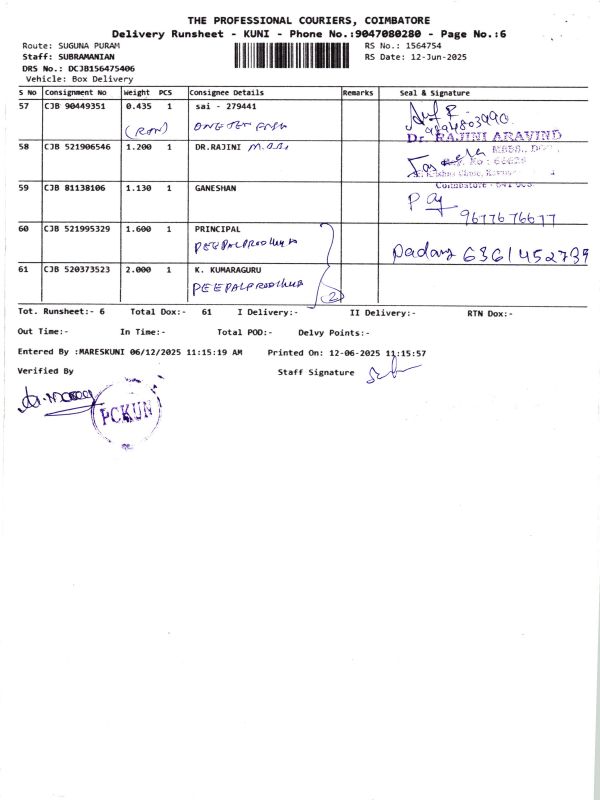 THE PROFESSIONAL COURIERS, COIMBATORE
Delivery Runsheet - KUNI - Phone No.:9047080280 - Page No.:6
Route: SUGUNA PURAM
RS No.: 1564754
Staff: SUBRAMANIAN
RS Date: 12-Jun-2025
DRS No.: DCJB156475406
Vehicle: Box Delivery
S No Consignment No Weight PCS Consignee Details Remarks Seal & Signature
57 CJB 90449351 0.435 1 sai - 279441
9894803990
Dr. RAJINI ARAVIND
58 CJB 521906546 1.200 1 DR.RAJINI
MBBS.,
Coimbatore - 641 008
59 CJB 81138106 1.130 1 GANESHAN
9677676677
60 CJB 521995329 1.600 1 PRINCIPAL
6361452739
61 CJB 520373523 2.000 1 K. KUMARAGURU
2
Tot. Runsheet:- 6 Total Dox:- 61 I Delivery:- II Delivery:- RTN Dox:-
Out Time:- In Time:- Total POD:- Delvy Points:-
Entered By :MARESKUNI 06/12/2025 11:15:19 AM Printed On: 12-06-2025 11:15:57
Verified By Staff Signature
PCKUN